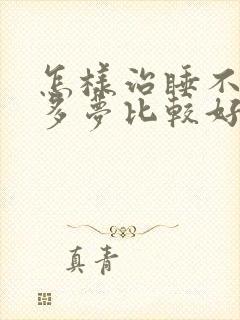 怎様治睡不
多夢比較好
真青